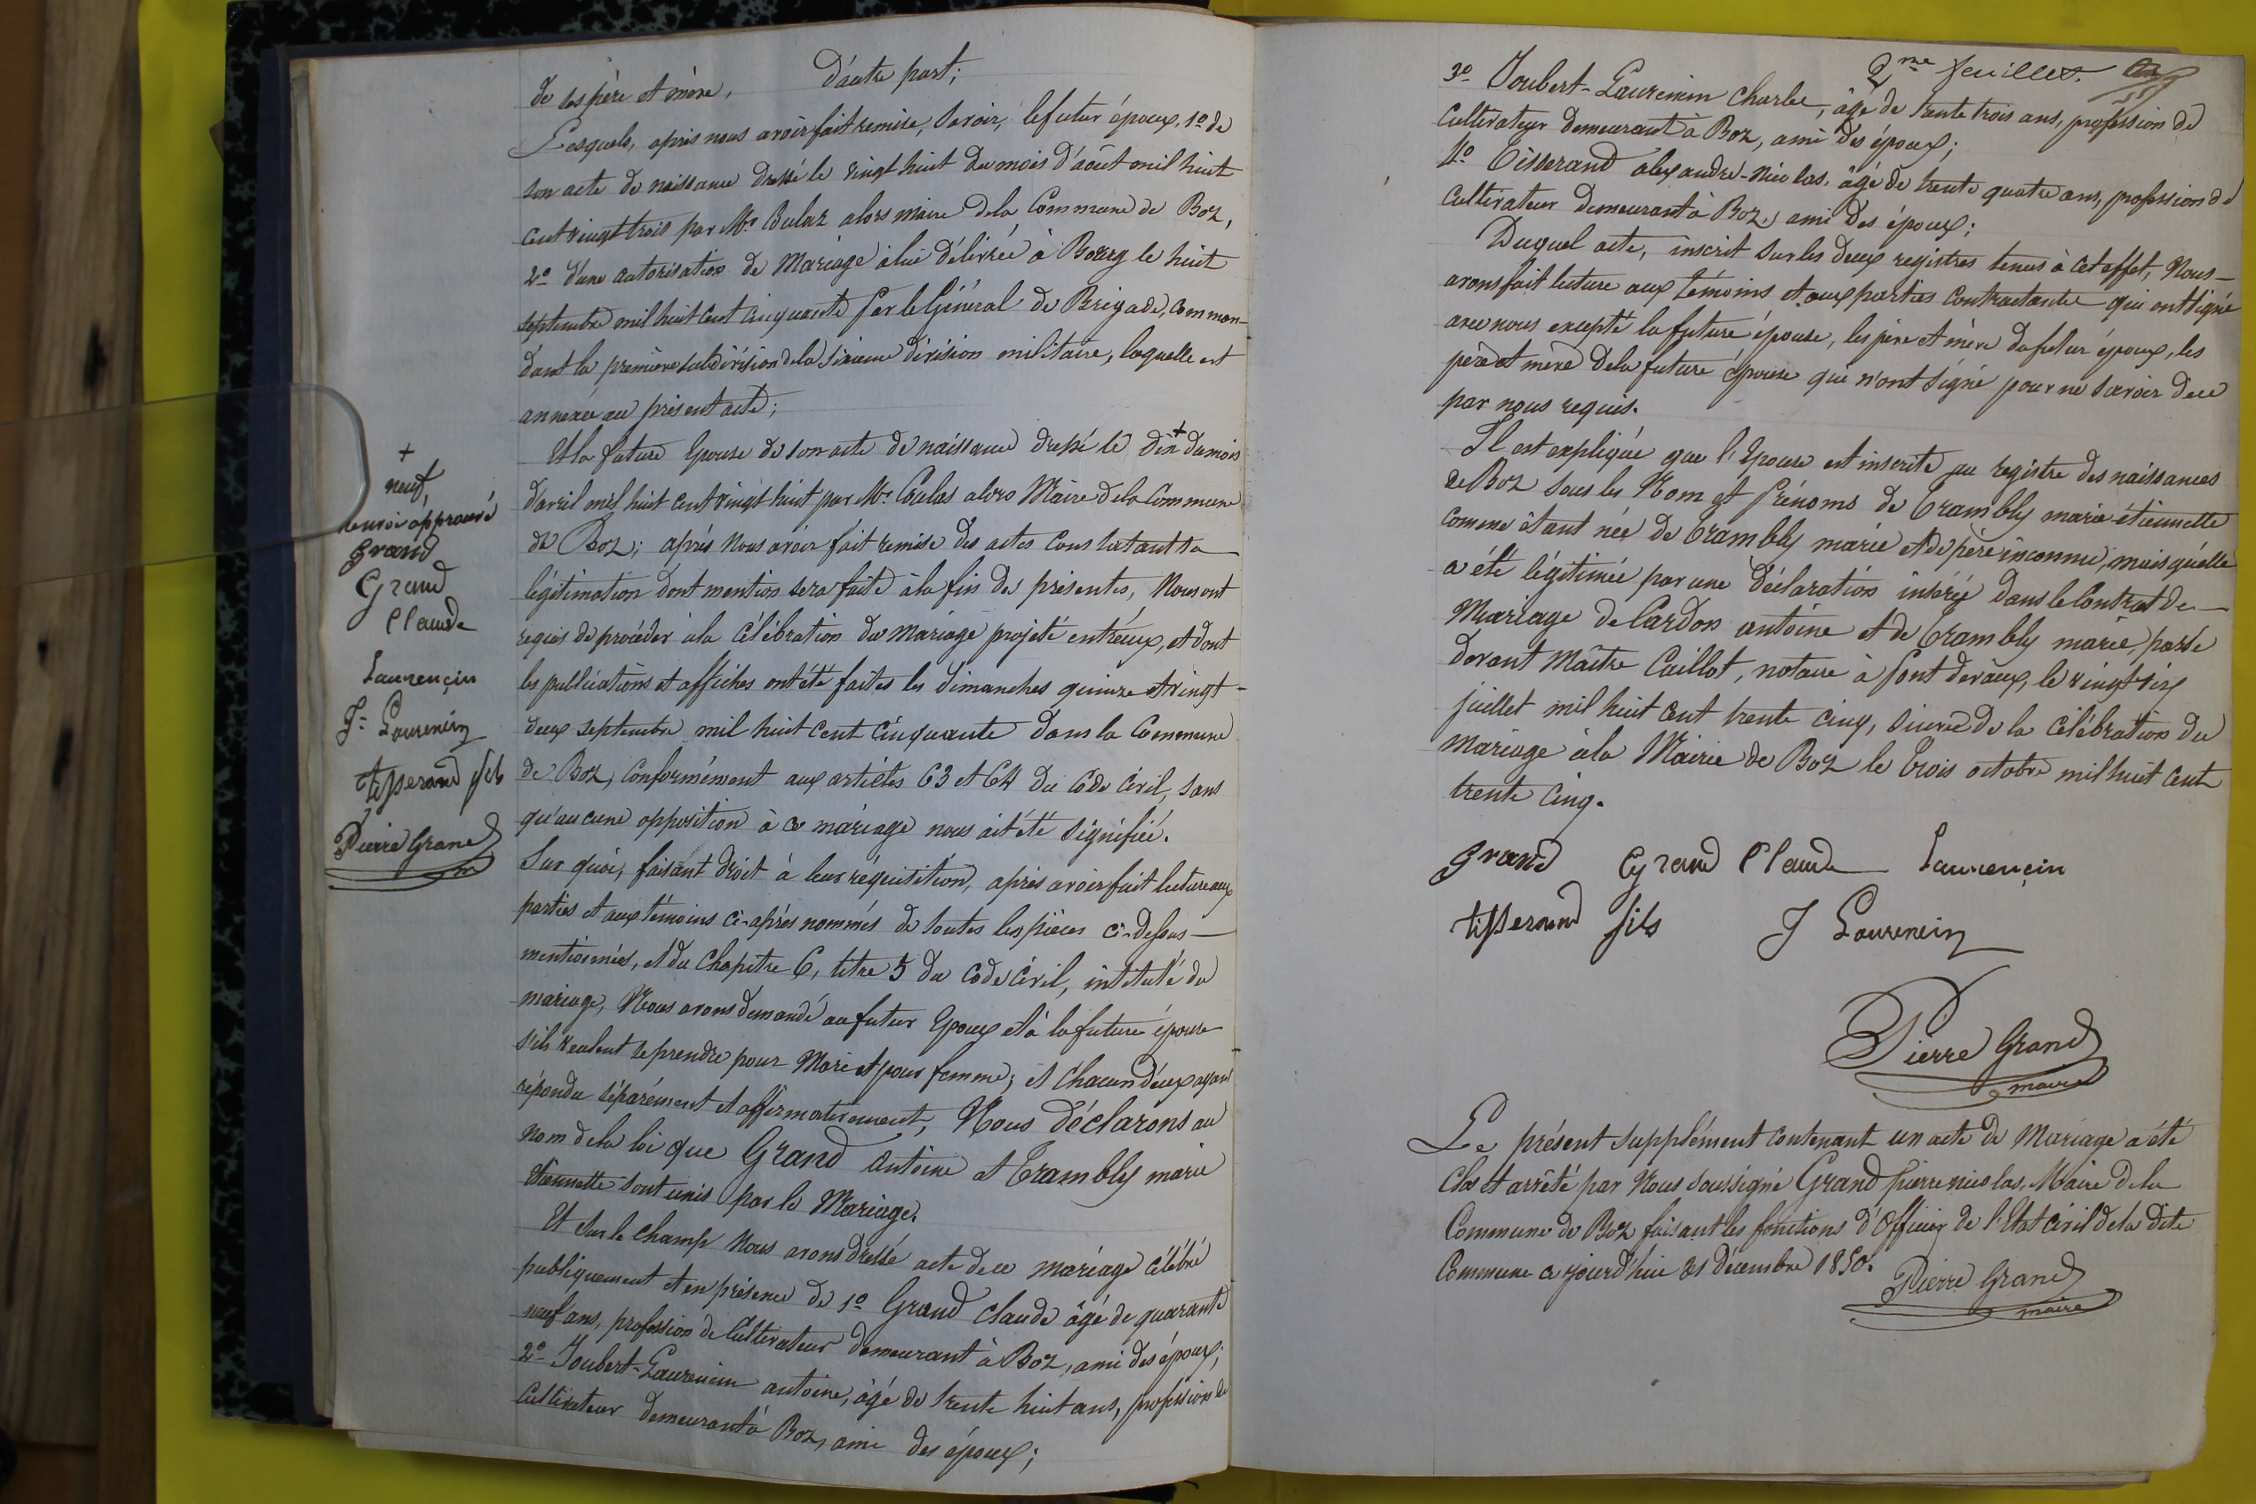 de ses père et mère, D'autre part;
Lesquels, après nous avoir fait remise, savoir, le futur époux, 1º de
son acte de naissance dressé le vingt huit du mois d'août mil huit
cent vingt trois par Mr. alors maire de la Commune de Boz,
2º d'une autorisation de Mariage à lui délivrée à Bourg le huit
septembre mil huit cent cinquante par le Général de Brigade, comman-
dant la première subdivision de la sixième division militaire, laquelle est
annexée au présent acte;
Et la future Epouse de son acte de naissance dressé le dix + du mois
d'avril mil huit cent vingt huit par Mr. alors Maire de la Commune
de Boz; après nous avoir fait remise des actes constatant sa
légitimation dont mention sera faite à la fin des présentes, Nous ont
requis de procéder à la célébration du mariage projeté entr'eux, et dont
les publications et affiches ont été faites les dimanches quinze et vingt-
deux septembre mil huit cent cinquante dans la Commune
de Boz, conformément aux articles 63 et 64 du Code Civil, sans
qu'aucune opposition à ce mariage nous ait été signifiée.
Sur quoi, faisant droit à leur réquisition, après avoir fait lecture aux
parties et aux témoins ci-après nommés de toutes les pièces ci-dessus
mentionnées, et du chapitre 6, titre 5 du code civil, intitulé du
mariage, Nous avons demandé au futur Epoux et à la future épouse
s'ils veulent se prendre pour Mari et pour femme; et chacun d'eux ayant
répondu séparément et affirmativement, Nous Déclarons au
nom de la loi que Grand Antoine et Trambly marie
étiennette sont unis par le Mariage.
Et sur le champ Nous avons dressé acte de ce mariage célébré
publiquement et en présence de 1º Grand Claude âgé de quarante
neuf ans, profession de Cultivateur demeurant à Boz, ami des époux;
2º Joubert-Laurencin antoine, âgé de trente huit ans, profession de
Cultivateur demeurant à Boz, ami des époux;
+
neuf,
renvoi approuvé
grand
Grand
Claude
Laurençin
J= Laurencin
tisserand fils
Pierre Grand
2me feuillet.
3º Joubert-Laurencin Charles, âgé de trente trois ans, profession de
Cultivateur demeurant à Boz, ami des époux;
4º Tisserand alexandre-Nicolas, âgé de trente quatre ans, profession de
Cultivateur demeurant à Boz, ami des époux;
Duquel acte, inscrit sur les deux registres tenus à cet effet, Nous
avons fait lecture aux témoins et aux parties contractantes qui ont signé
avec nous excepté la future épouse, les père et mère du futur époux, les
père et mère de la future épouse qui n'ont signé pour ne savoir de ce
par nous requis.
Il est expliqué que l'Epouse est inscrite au registre des naissances
de Boz sous les Nom et Prénoms de Trambly marie étiennette
comme étant née de Trambly marie et de père inconnu, mais qu'elle
a été légitimée par une déclaration insérée dans le Contrat de
Mariage de Cardon antoine et de Trambly marie, passé
devant Maître Caillot, notaire à pont devaux, le vingt six
juillet mil huit cent trente cinq, suivie de la célébration du
mariage à la Mairie de Boz le trois octobre mil huit cent
trente cinq.
grand Grand Claude Laurençin
tisserand fils J Laurencin
Pierre Grand
maire
Le présent supplément contenant un acte de Mariage a été
Clos et arrêté par Nous soussigné Grand pierre nicolas, Maire de la
Commune de Boz faisant les fonctions d'Officier de l'Etat Civil de la dite
Commune cejourd'hui 31 décembre 1850.
Pierre Grand
maire